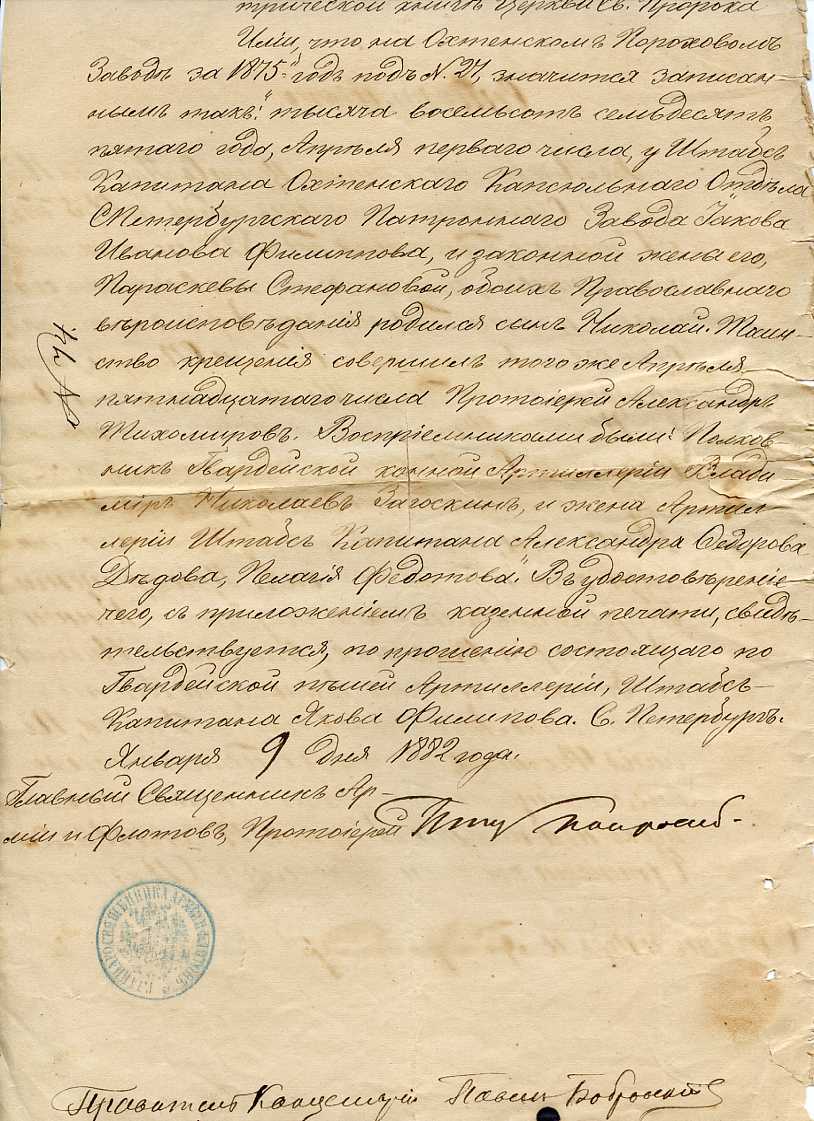 трической книгѣ Церкви Св. Пророка
Иліи, что на Охтенскомъ Пороховомъ
Заводѣ за 1875й годъ подъ N. 27, значится записан-
нымъ такъ: "тысяча восемьсотъ семьдесятъ
пятаго года, Апрѣля перваго числа, у Штабсъ
Капитана Охтенскаго Капсюльнаго Отдѣла
СПетербургскаго Патроннаго Завода Іакова
Иванова Филиппова, и законной жены его,
Параскевы Стефановой, обоихъ Православнаго
вѣроисповѣданія родился сынъ Николай. Таин-
ство крещенія совершилъ того же Апрѣля
пятнадцатаго числа Протоіерей Александръ
Тихомировъ. Воспріемниками были: Полков-
никъ Гвардейской конной Артиллеріи Влади
міръ Николаевъ Загоскинъ, и жена Артил
леріи Штабсъ Капитана Александра Ѳедорова
Дѣдова, Пелагія Федотова". Въ удостовѣреніе
чего, съ приложеніемъ казенной печати, свидѣ-
тельствуется, по прошенію состоящаго по
Гвардейской пѣшей Артиллеріи, Штабсъ-
Капитана Якова Филипова. С. Петербургъ.
Января 9 дня 1882 года.
Главный Священникъ Ар-
міи и Флотовъ, Протоіерей Петръ Покровскій
ГЛАВНАГО СВЯЩЕННИКА АРМІИ И ФЛОТОВЪ
Правитель Канцеляріи Павелъ